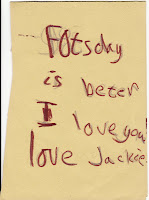 Fotsday
is beter
I love you!
love Jackie